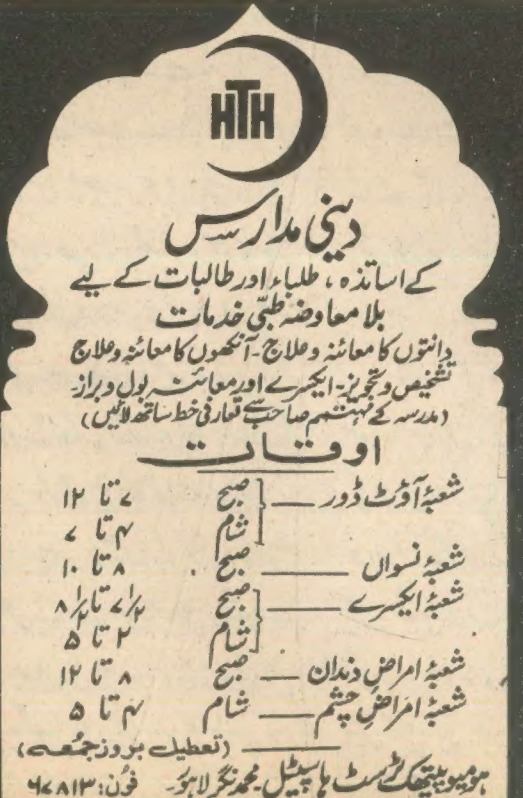 HTH
دینی مدارس
کے اساتذہ، طلباء اور طالبات کے لیے
بلا معاوضہ طبّی خدمات
دانتوں کا معائنہ و علاج - آنکھوں کا معائنہ و علاج
تشخیص و تجویز - ایکسرے اور معائنہ بول و براز -
(مدرسہ کے مہتمم صاحب سے تعارفی خط ساتھ لائیں)
اوقات
شعبۂ آؤٹ ڈور — صبح ۷ تا ۱۲
شام ۴ تا ۷
شعبۂ نسواں — صبح ۸ تا ۱۰
شعبۂ ایکسرے — صبح ۷ ۱/۲ تا ۸ ۱/۲
شام ۲ تا ۵
شعبۂ امراضِ دندان — صبح ۸ تا ۱۲
شعبۂ امراضِ چشم — شام ۴ تا ۵
(تعطیل بروز جمعہ)
ہومیوپیتھک ٹرسٹ ہاسپٹل - محمد نگر لاہور - فون: ۶۷۸۱۳